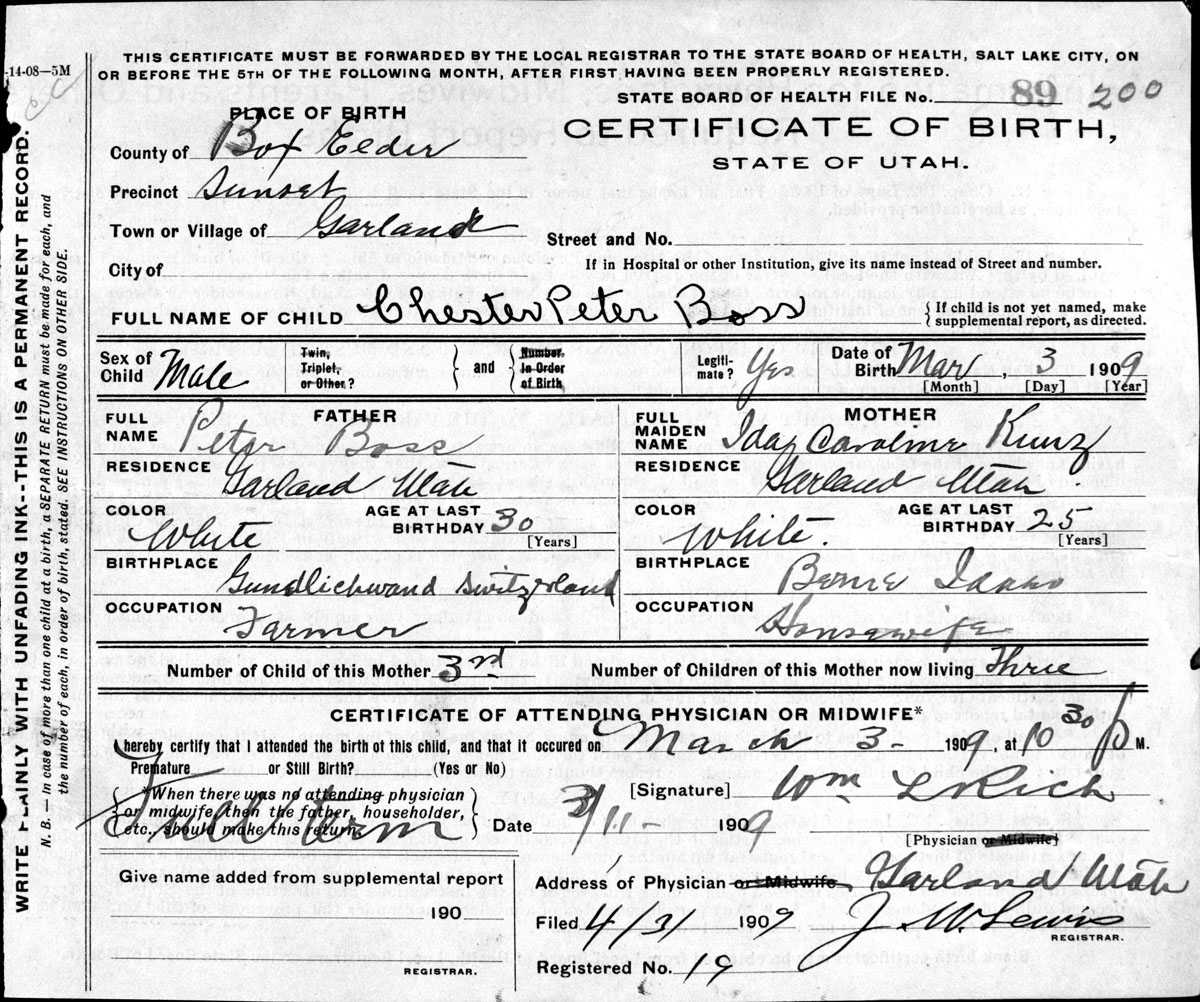 THIS CERTIFICATE MUST BE FORWARDED BY THE LOCAL REGISTRAR TO THE STATE BOARD OF HEALTH, SALT LAKE CITY, ON
-14-08—5M
OR BEFORE THE 5TH OF THE FOLLOWING MONTH, AFTER FIRST HAVING BEEN PROPERLY REGISTERED.
STATE BOARD OF HEALTH FILE No. 89 200
PLACE OF BIRTH
CERTIFICATE OF BIRTH,
STATE OF UTAH.
County of Box Elder
Precinct Sunset
Town or Village of Garland
Street and No.
City of
If in Hospital or other Institution, give its name instead of Street and number.
FULL NAME OF CHILD Chester Peter Boss
{ If child is not yet named, make
supplemental report, as directed.
Sex of Child Male
Twin, Triplet, or Other? } and { Number, In Order of Birth
Legiti-mate? Yes
Date of Birth Mar 3 1909
[Month] [Day] [Year]
FATHER
FULL NAME Peter Boss
RESIDENCE
Garland Utah
COLOR White
AGE AT LAST BIRTHDAY 30
[Years]
BIRTHPLACE
Gundlichwand Switzerland
OCCUPATION
Farmer
MOTHER
FULL MAIDEN NAME Ida Caroline Kunz
RESIDENCE
Garland Utah
COLOR White.
AGE AT LAST BIRTHDAY 25
[Years]
BIRTHPLACE
Berne Idaho
OCCUPATION
Housewife
Number of Child of this Mother 3rd
Number of Children of this Mother now living Three
CERTIFICATE OF ATTENDING PHYSICIAN OR MIDWIFE*
I hereby certify that I attended the birth of this child, and that it occured on March 3- 1909, at 10 30 P M.
Premature or Still Birth? (Yes or No)
Full term
*When there was no attending physician
or midwife, then the father, householder,
etc., should make this return.
[Signature] Wm L Rich
Date 3/11- 1909
[Physician or Midwife]
Give name added from supplemental report
190
REGISTRAR.
Address of Physician or Midwife Garland Utah
Filed 4/3/ 1909 J. W. Lewis
REGISTRAR.
Registered No. 19
WRITE PLAINLY WITH UNFADING INK--THIS IS A PERMANENT RECORD.
N. B. — In case of more than one child at a birth, a SEPARATE RETURN must be made for each, and
the number of each, in order of birth, stated. SEE INSTRUCTIONS ON OTHER SIDE.